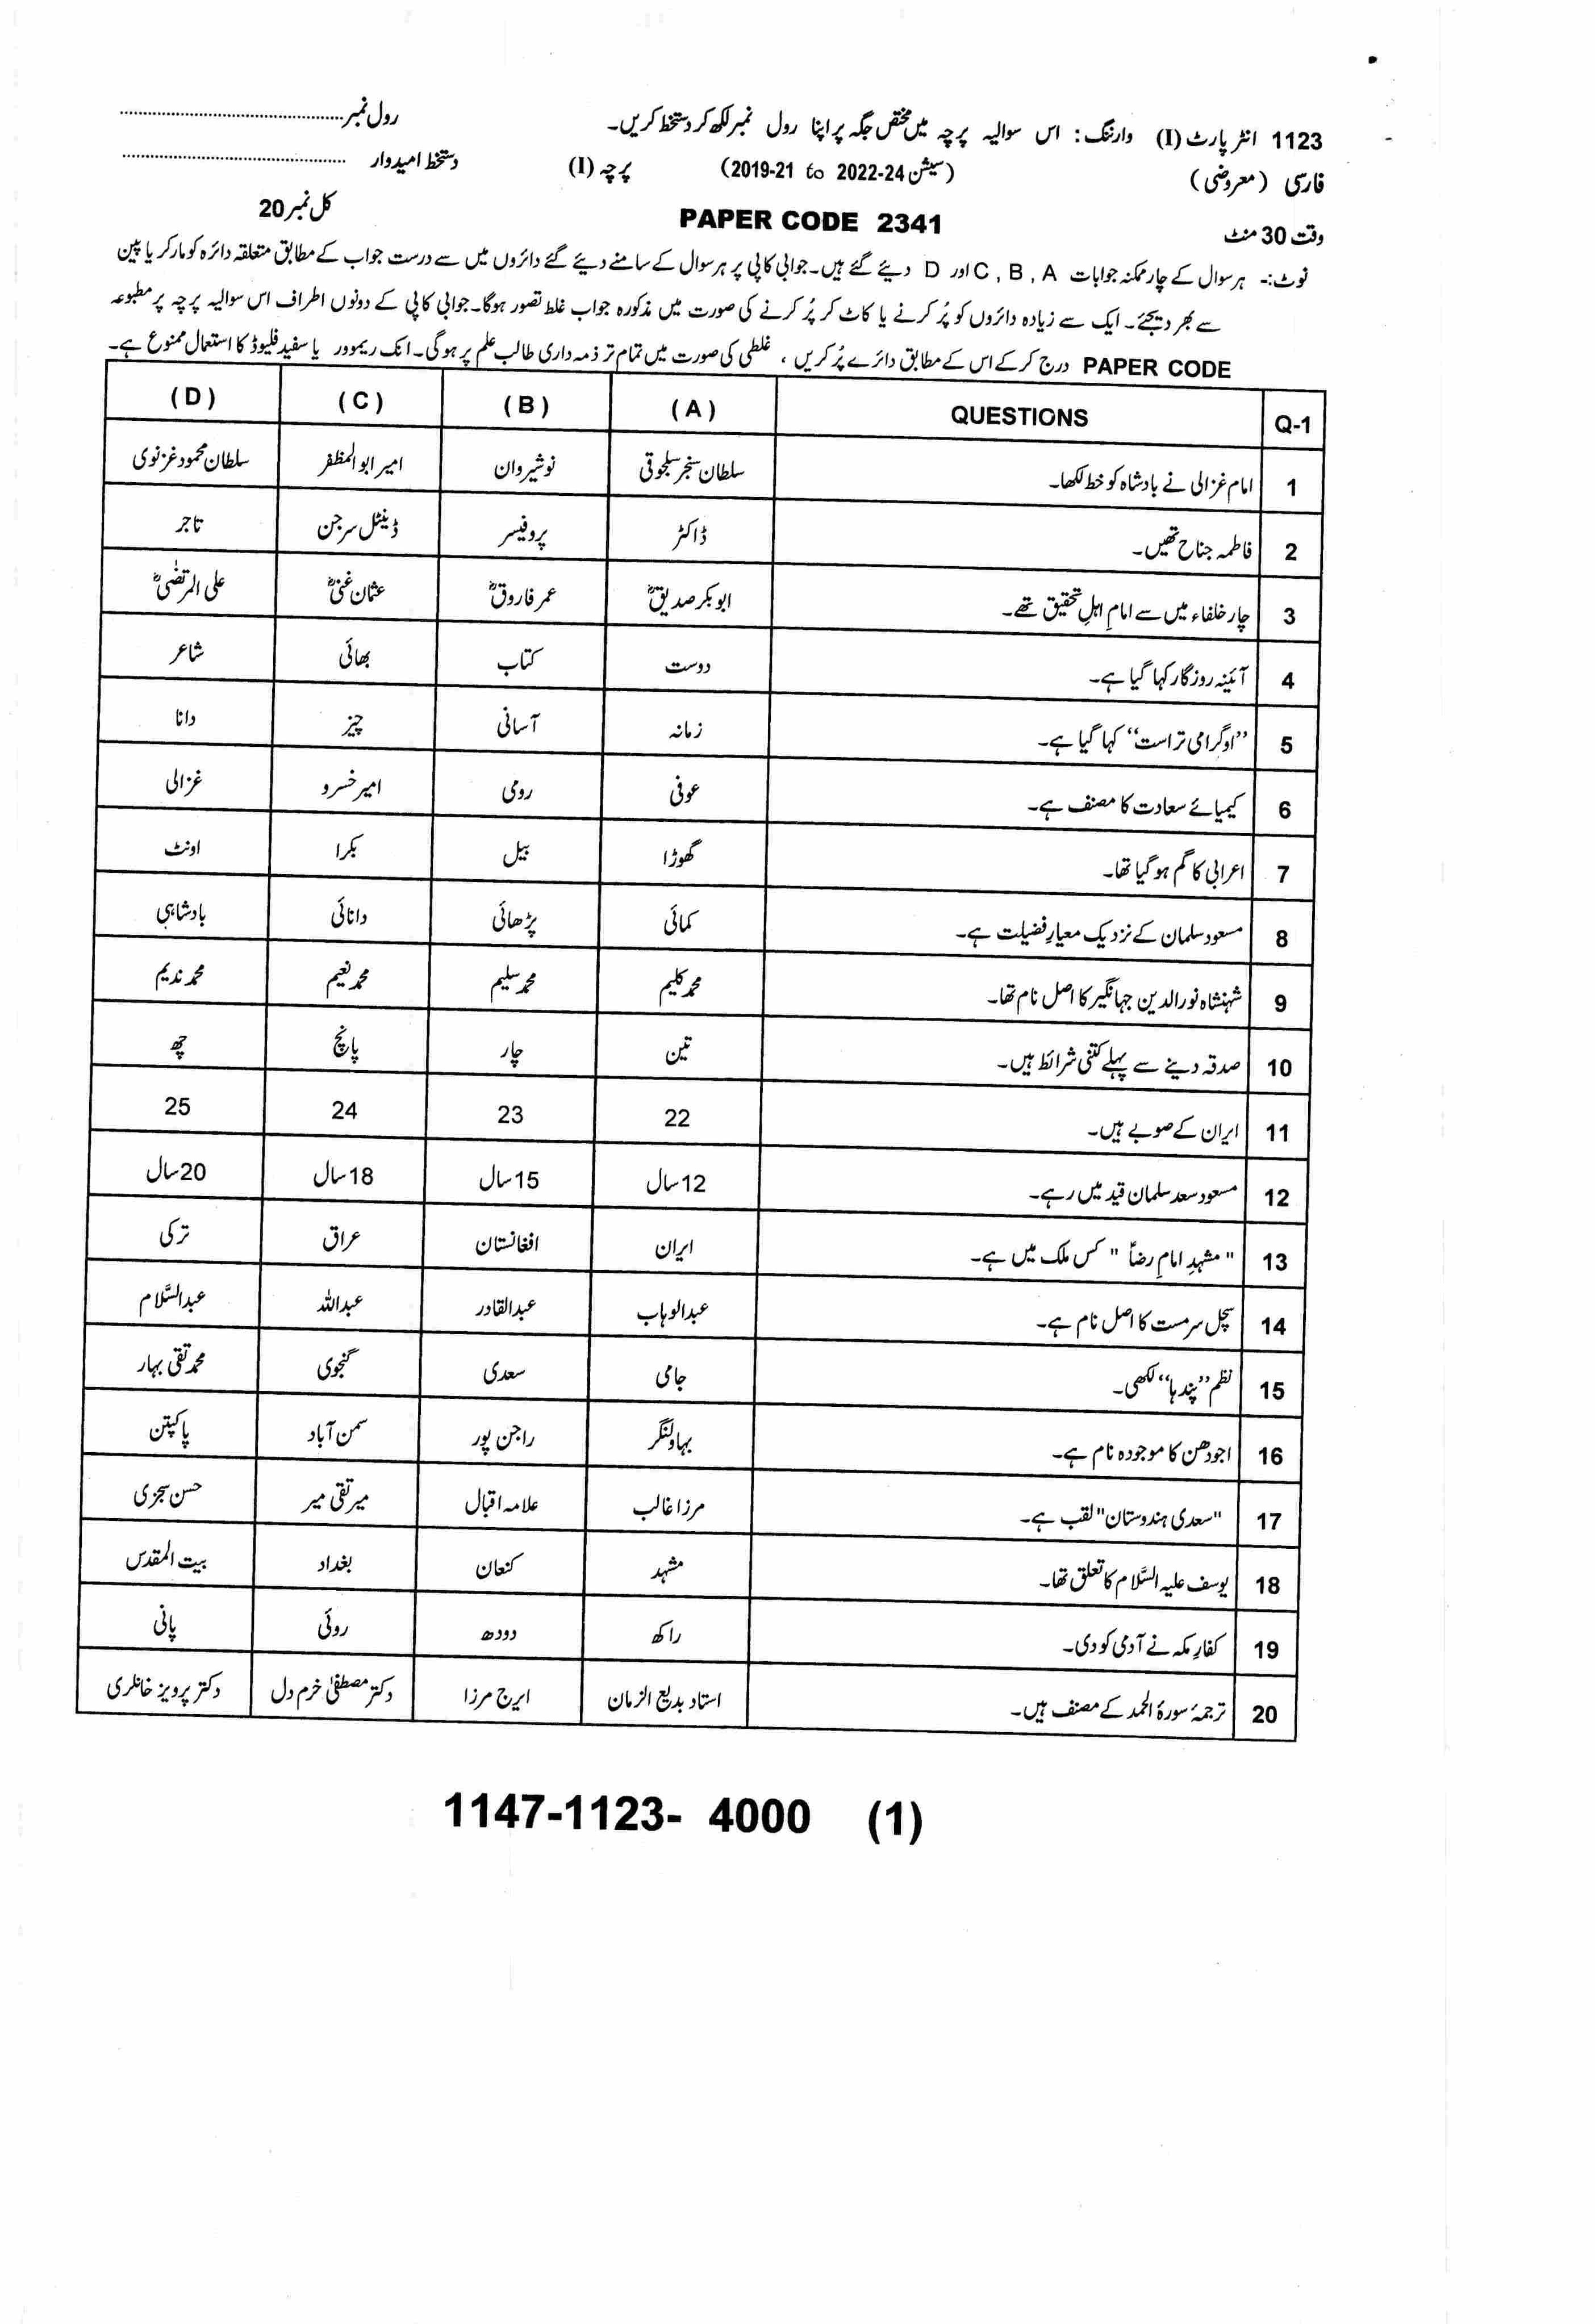 1123 انٹر پارٹ (I) وارننگ: اس سوالیہ پرچہ میں مختص جگہ پر اپنا رول نمبر لکھ کر دستخط کریں۔ رول نمبر
فارسی (معروضی) (سیشن 2019-21 to 2022-24) پرچہ (I) دستخط امیدوار
وقت 30 منٹ PAPER CODE 2341 کل نمبر 20
نوٹ:- ہر سوال کے چار ممکنہ جوابات A , B , C اور D دیئے گئے ہیں۔ جوابی کاپی پر ہر سوال کے سامنے دیئے گئے دائروں میں سے درست جواب کے مطابق متعلقہ دائرہ کو مارکر یا پین
سے بھر دیجئے۔ ایک سے زیادہ دائروں کو پُر کرنے یا کاٹ کر پُر کرنے کی صورت میں مذکورہ جواب غلط تصور ہوگا۔ جوابی کاپی کے دونوں اطراف اس سوالیہ پرچہ پر مطبوعہ
PAPER CODE درج کر کے اس کے مطابق دائرے پُر کریں ، غلطی کی صورت میں تمام تر ذمہ داری طالب علم پر ہوگی۔ انک ریموور یا سفید فلیوڈ کا استعمال ممنوع ہے۔
Q-1 QUESTIONS (A) (B) (C) (D)
1 امام غزالی نے بادشاہ کو خط لکھا۔ سلطان سنجر سلجوقی نوشیروان امیر ابوالمظفر سلطان محمود غزنوی
2 فاطمہ جناح تھیں۔ ڈاکٹر پروفیسر ڈینٹل سرجن تاجر
3 چار خلفاء میں سے امامِ اہلِ تحقیق تھے۔ ابوبکر صدیقؓ عمر فاروقؓ عثمان غنیؓ علی المرتضٰیؓ
4 آئینہ روزگار کہا گیا ہے۔ دوست کتاب بھائی شاعر
5 ”اوگرامی تر است“ کہا گیا ہے۔ زمانہ آسانی چیز دانا
6 کیمیائے سعادت کا مصنف ہے۔ عوفی رومی امیر خسرو غزالی
7 اعرابی کا گم ہو گیا تھا۔ گھوڑا بیل بکرا اونٹ
8 مسعود سلمان کے نزدیک معیارِ فضیلت ہے۔ کمائی پڑھائی دانائی بادشاہی
9 شہنشاہ نورالدین جہانگیر کا اصل نام تھا۔ محمد کلیم محمد سلیم محمد نعیم محمد ندیم
10 صدقہ دینے سے پہلے کتنی شرائط ہیں۔ تین چار پانچ چھ
11 ایران کے صوبے ہیں۔ 22 23 24 25
12 مسعود سعد سلمان قید میں رہے۔ 12 سال 15 سال 18 سال 20 سال
13 " مشہدِ امامِ رضاؑ " کس ملک میں ہے۔ ایران افغانستان عراق ترکی
14 سچل سرمست کا اصل نام ہے۔ عبدالوہاب عبدالقادر عبداللہ عبدالسَّلام
15 نظم ”پندہا“ لکھی۔ جامی سعدی گنجوی محمد تقی بہار
16 اجودھن کا موجودہ نام ہے۔ بہاولنگر راجن پور سمن آباد پاکپتن
17 "سعدی ہندوستان" لقب ہے۔ مرزا غالب علامہ اقبال میر تقی میر حسن سجزی
18 یوسف علیہ السَّلام کا تعلق تھا۔ مشہد کنعان بغداد بیت المقدس
19 کفارِ مکہ نے آدمی کو دی۔ راکھ دودھ روئی پانی
20 ترجمۂ سورۂ الحمد کے مصنف ہیں۔ استاد بدیع الزمان ایرج مرزا دکتر مصطفیٰ خرم دل دکتر پرویز خانلری
1147-1123- 4000 (1)